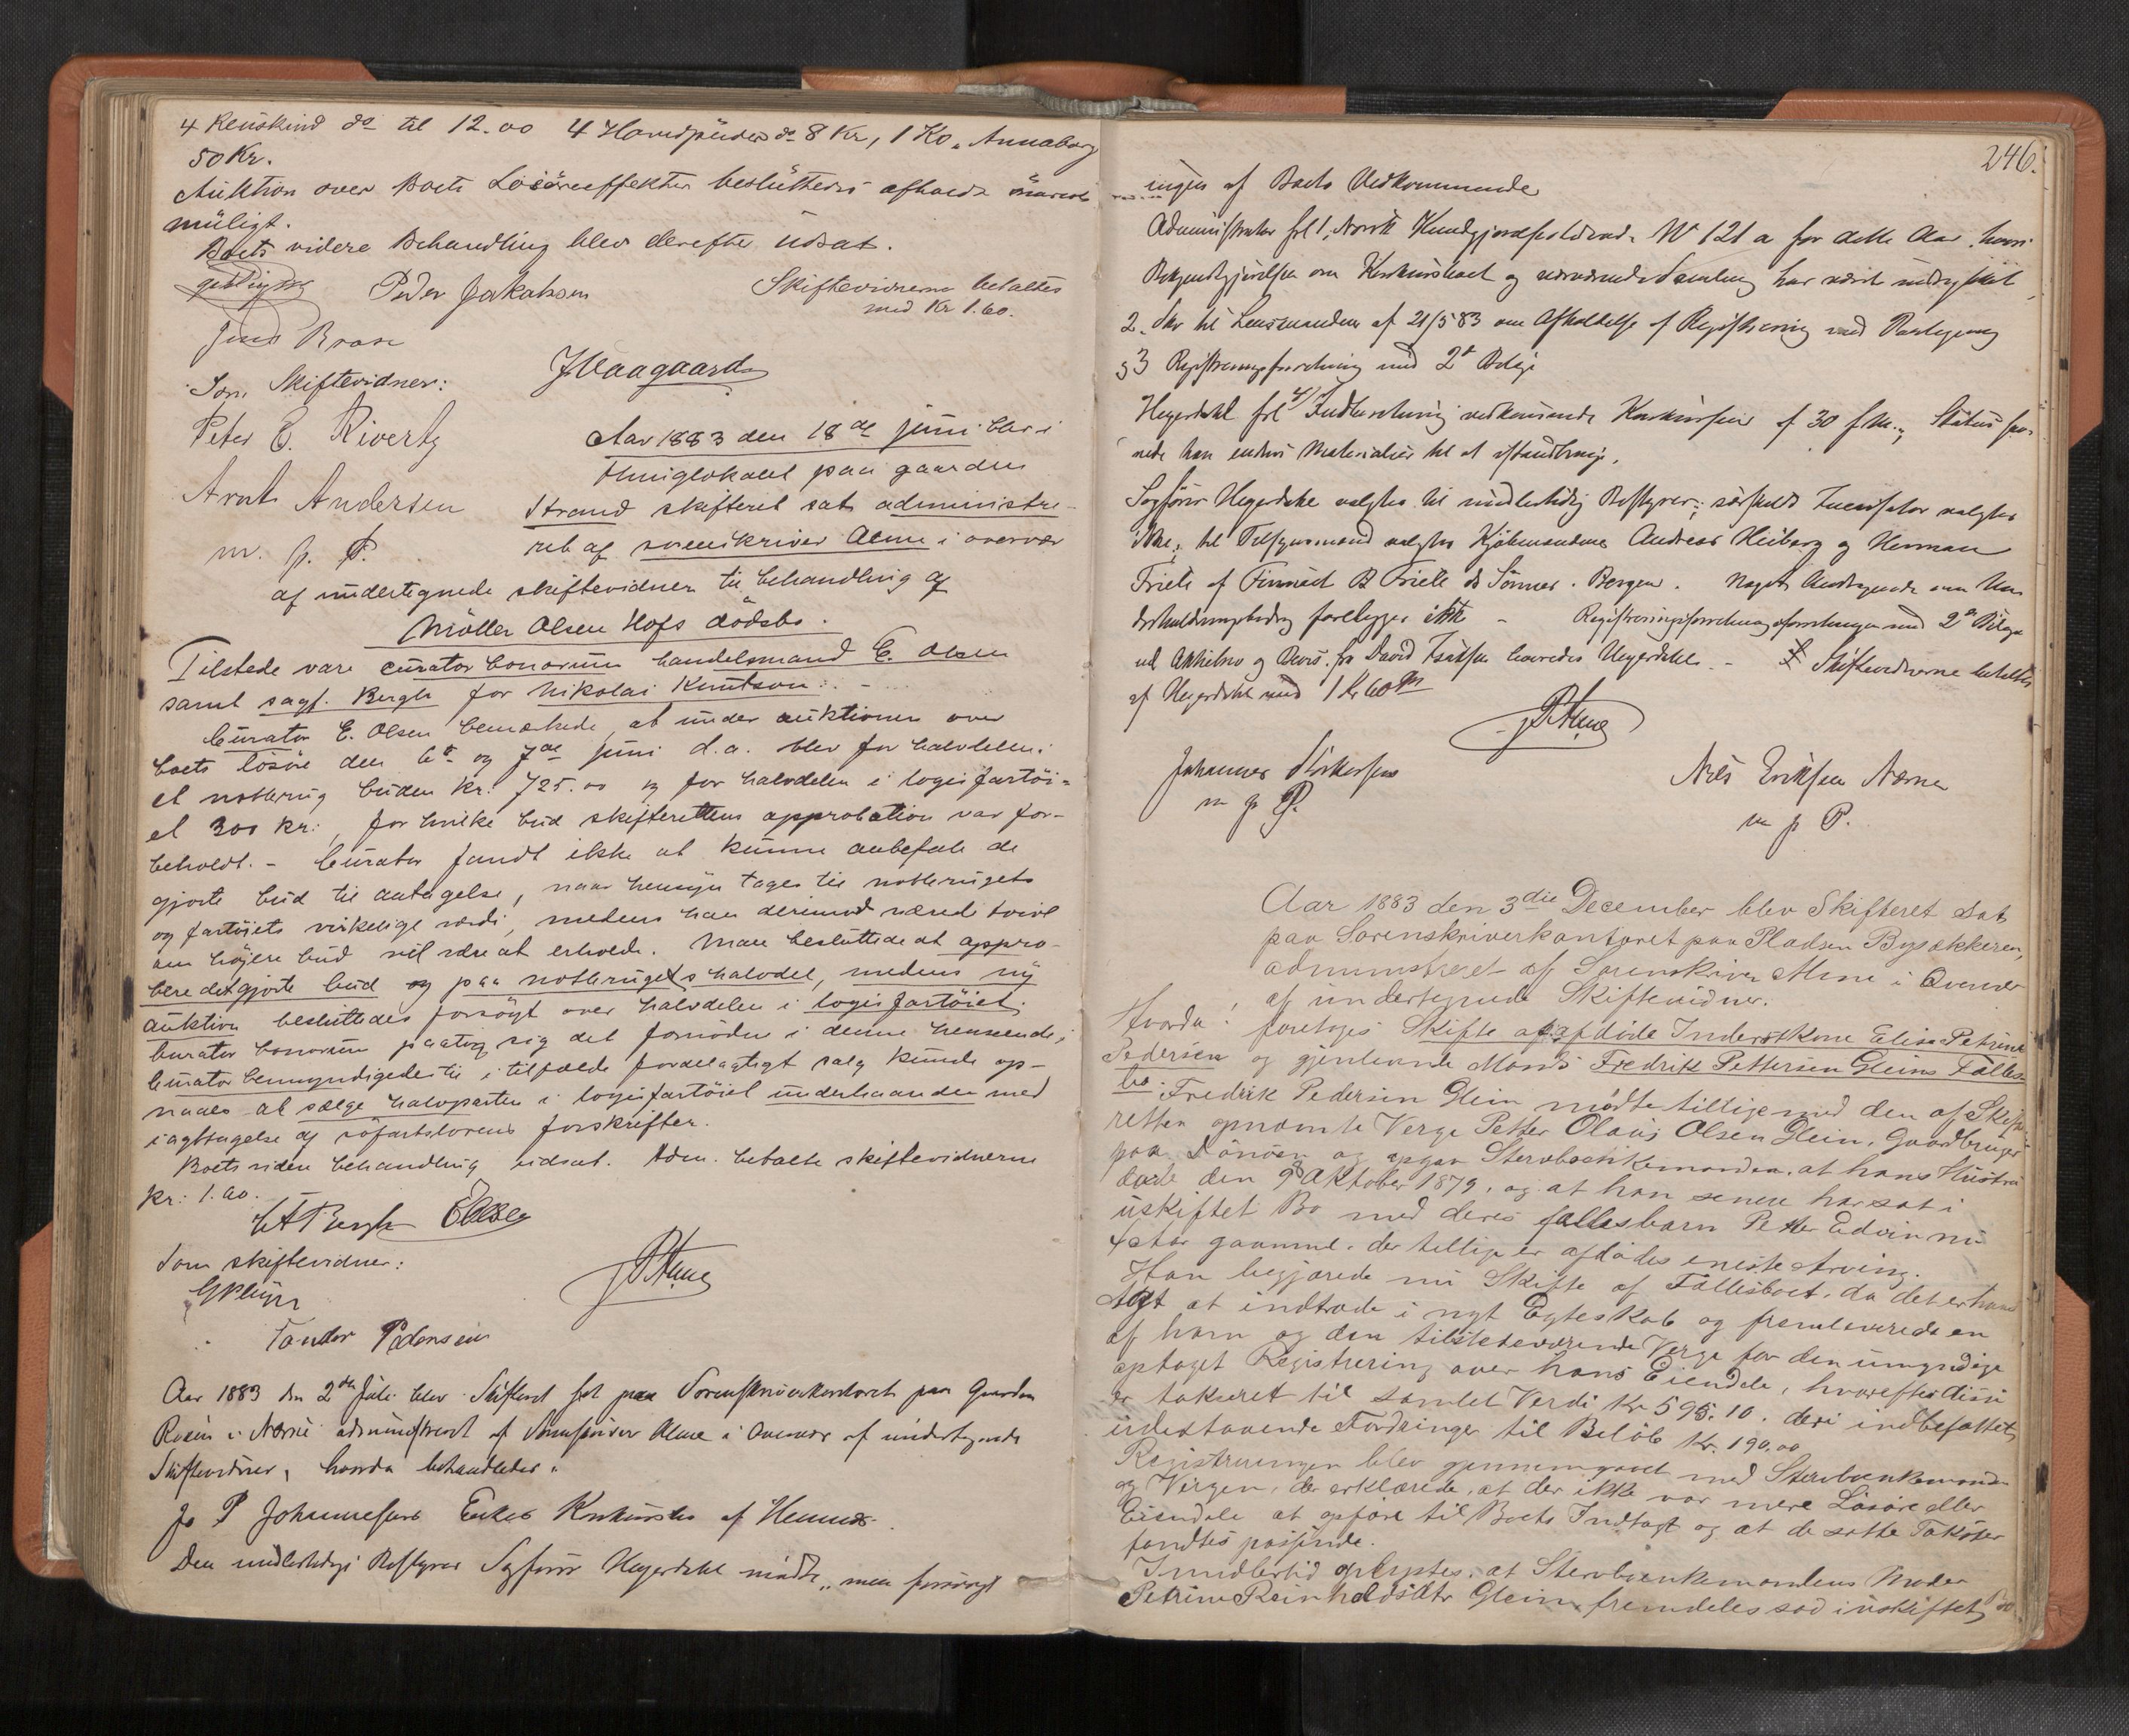 4 Renskind do til 12.00 4 Hovedpuder do 8 Kr, 1 Ko "Annaborg
50 Kr.
Auktion over Boets Lösöreeffekter besluttedes afholdt snarest
muligt.
Boets videre Behandling blev derefter udsat.
Peder Jakobsen
Skiftevidnerne betaltes
med Kr 1.60.
Jens
Som Skiftevidner:
J Vaagaard
Peter C. Rivertz
Arnt Andersen
m. p. P.
Aar 1883 den 18de juni blev i
thinglokalet paa gaarden
Strand skifteret sat administre-
ret af sorenskriver Alme i overvær
af undertegnede skiftevidner til behandling af
Möller Olsen Hofs dödsbo.
Tilstede vare curator bonorum handelsmand E. Olsen
samt sagf. Bergh for Nikolai Knutson. -
Curator E. Olsen bemærkede, at under auktionen over
boets lösöre den 6te og 7de juni d.a. blev for halvdelen i
et notbrug buden Kr. 725.00 og for halvdelen i logisfartöi-
et 300 Kr., for hvilke bud skifterettens approbation var for-
beholdt. - Curator fandt ikke at kunne anbefale de
gjorte bud til antagelse, naar hensyn tages til notbrugets
og fartöiets virkelige værdi, medens han derimod nærede tvivl
om höjere bud vil være at erholde. Man besluttede at appro-
bere det gjorte bud paa notbrugets halvdel, medens ny
auktion besluttedes forsögt over halvdelen i logisfartöiet.
Curator bonorum paatog sig det fornödne i denne henseende;
Curator bemyndigedes til i tilfælde fordelagtigt salg kunde op-
naaes at sælge halvparten i logisfartöiet underhaanden med
iagttagelse af söfartslovens forskrifter.
Boets videre behandling udsat. Adm. betalte skiftevidnerne
Kr: 1.60.
Bergh E Olsen
Som skiftevidner:
Tander Pedersen
Aar 1883 den 2den Juli blev Skifteret sat paa Sorenskriverkontoret paa Gaarden
administreret af Sorenskriver Alme i Overvær af undertegnede
Skiftevidner, hvorda behandledes:
Johannesens Enkes Konkursbo af Hemnes.
Den midlertidige Bestyrer Sagförer Hegerdahl mödte, men
246.
ingen af Boets Vedkommende
Administrator frl 1, Norsk Kundgjörelsestidende No 121 a for dette Aar hvori
Bekjendtgjörelse om Konkursboet og nærværende Samling har været indrykket,
2. Skr til Lensmanden af 21/5 83 om Afholdelse af Registrering med Paategning
3 Registreringsforretning med 2de Bilage
Hegerdahl frl 4) Indberetning vedkommende Konkursen af 30 f.M.; Status
nede han endnu Materialier til at istandbringe.
Sagförer Hegerdahl valgtes til midlertidig Bestyrer; særskilt Incassator valgtes
ikke; til Tilsynsmænd valgtes Kjöbmændene Andreas Heiberg og Herman
Friele af Firmaet B Friele & Sönner. Bergen. Noget Andragende om Un-
derholdningsbidrag forelægges ikke - Registreringsforretningen med 2de Bilage
fra David Isaksen leveredes Hegerdahl. - Skiftevidnerne betaltes
af Hegerdahl med 1 Kr 60
Johannes
m p P.
Nils Eriksen
m p P.
Aar 1883 den 3die December blev Skifteret sat
paa Sorenskriverkontoret paa Pladsen Bysækkeren,
administreret af Sorenskriver Alme i Overvær
af undertegnede Skiftevidner.
Hvorda: foretoges Skifte af afdöde Inderstkone Elisa Petrine
Pedersen og gjenlevende Mands Fredrik Pettersen Gleins Fælles-
bo. Fredrik Pedersen Glein mödte tillige med den af Skifte-
retten opnævnte Verge Petter Olaus Olsen Glein, Gaardbruger
paa Dönöen og opgav Stervboenkemanden, at hans Hustru
döde den 9de Oktober 1879, og at han senere har sat i
uskiftet Bo med deres fællesbarn Petter Edvin nu
4 Aar gammel, der tillige er afdödes eneste Arving.
Han begjærede nu Skifte af Fællesboet, da det er hans
Agt at indtræde i nyt Egteskab og fremleverede en
af ham og den tilstedeværende Verge for den umyndige
optaget Registrering over hans Eiendele, hvorefter disse
er takseret til samlet Verdi Kr 595.10. deri indbefattet
udestaaende Fordringer til Belöb Kr. 190.00
Registreringen blev gjennemgaaet med Stervboenkemanden
og Vergen, der erklærede, at der ikke var mere Lösöre eller
Eiendele at opföre til Boets Indtægt og at de satte Takster
fandtes passende.
Imidlertid oplystes, at Stervboenkemandens Moder
Petrine Reinholdsdtr Glein fremdeles sad i uskiftet Bo